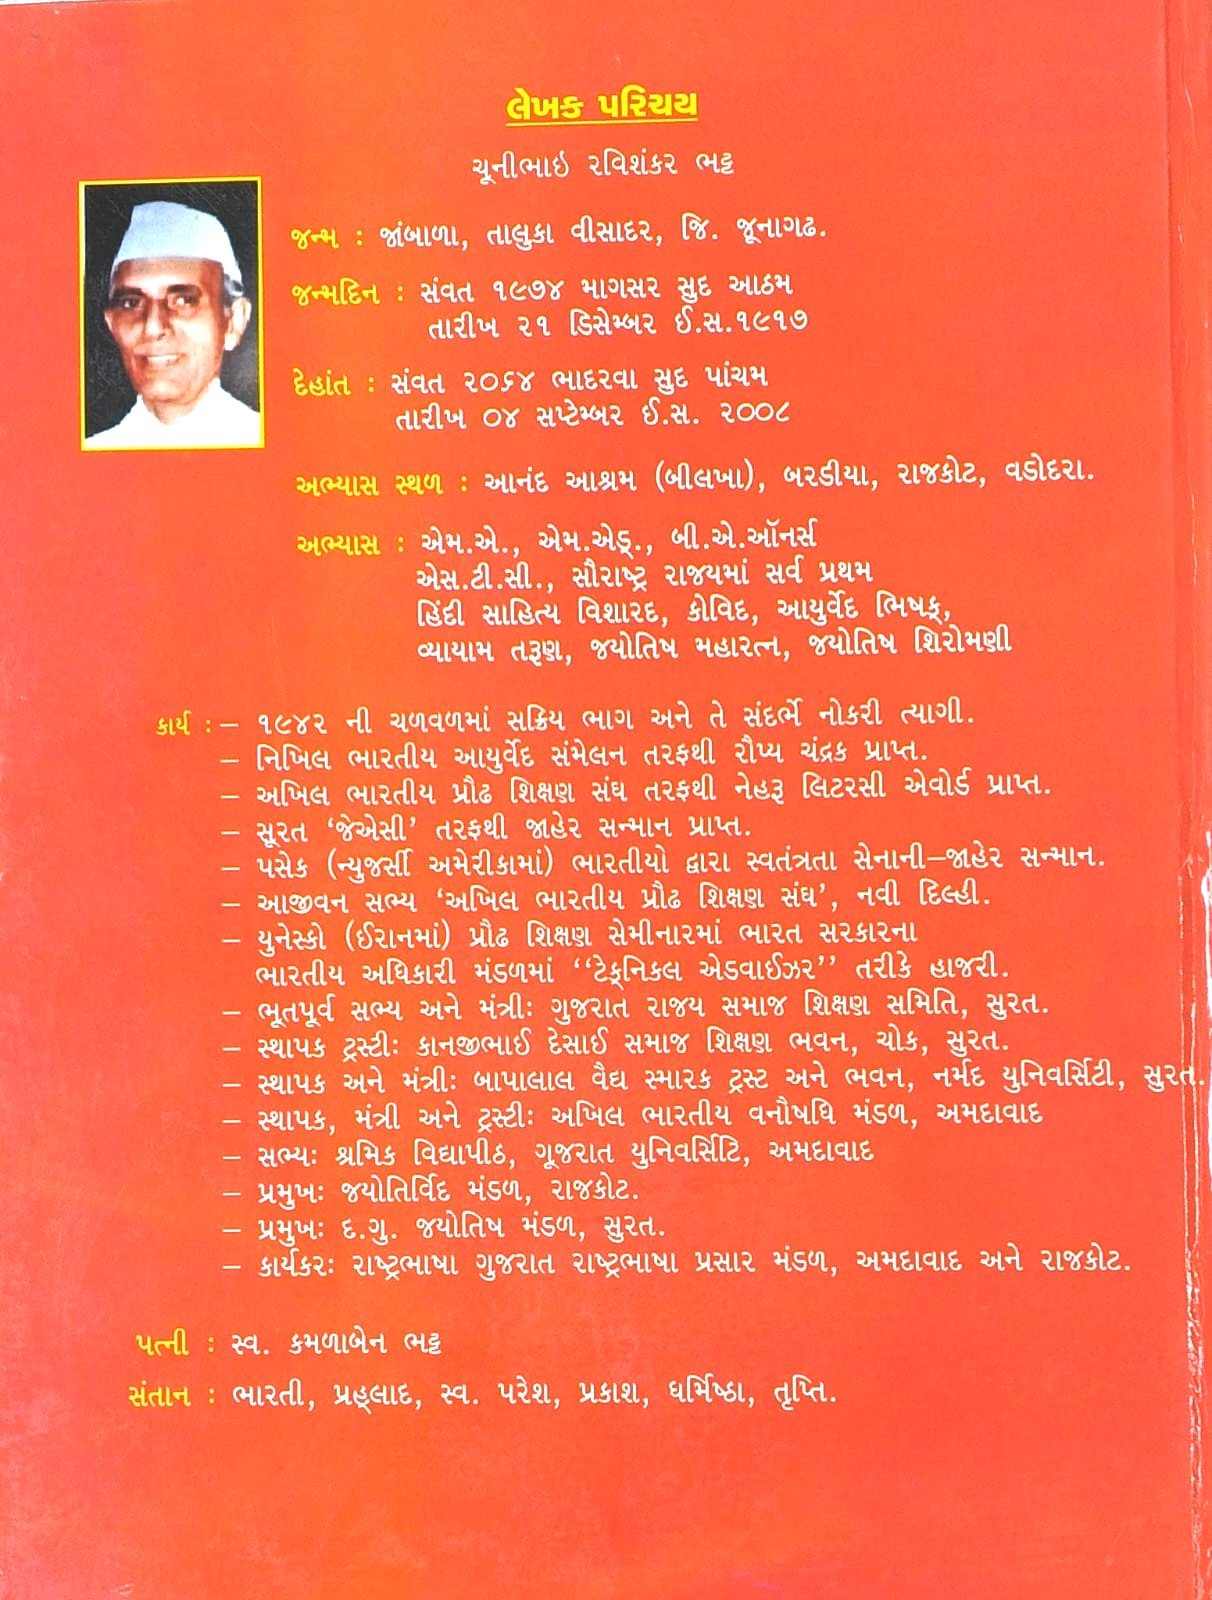 લેખક પરિચય
ચૂનીભાઇ રવિશંકર ભટ્ટ
જન્મ : જાંબાળા, તાલુકા વીસાદર, જિ. જૂનાગઢ.
જન્મદિન : સંવત ૧૯૭૪ માગસર સુદ આઠમ
તારીખ ૨૧ ડિસેમ્બર ઈ.સ.૧૯૧૭
દેહાંત : સંવત ૨૦૬૪ ભાદરવા સુદ પાંચમ
તારીખ ૦૪ સપ્ટેમ્બર ઈ.સ. ૨૦૦૮
અભ્યાસ સ્થળ : આનંદ આશ્રમ (બીલખા), બરડીયા, રાજકોટ, વડોદરા.
અભ્યાસ : એમ.એ., એમ.એડ્., બી.એ.ઑનર્સ
એસ.ટી.સી., સૌરાષ્ટ્ર રાજયમાં સર્વ પ્રથમ
હિંદી સાહિત્ય વિશારદ, કોવિદ, આયુર્વેદ ભિષક્,
વ્યાયામ તરૂણ, જયોતિષ મહારત્ન, જયોતિષ શિરોમણી
કાર્ય : – ૧૯૪૨ ની ચળવળમાં સક્રિય ભાગ અને તે સંદર્ભે નોકરી ત્યાગી.
– નિખિલ ભારતીય આયુર્વેદ સંમેલન તરફથી રૌપ્ય ચંદ્રક પ્રાપ્ત.
– અખિલ ભારતીય પ્રૌઢ શિક્ષણ સંઘ તરફથી નેહરૂ લિટરસી એવોર્ડ પ્રાપ્ત.
– સૂરત ‘જેએસી’ તરફથી જાહેર સન્માન પ્રાપ્ત.
– પસેક (ન્યુજર્સી અમેરીકામાં) ભારતીયો દ્વારા સ્વતંત્રતા સેનાની–જાહેર સન્માન.
– આજીવન સભ્ય ‘અખિલ ભારતીય પ્રૌઢ શિક્ષણ સંઘ’, નવી દિલ્હી.
– યુનેસ્કો (ઈરાનમાં) પ્રૌઢ શિક્ષણ સેમીનારમાં ભારત સરકારના
ભારતીય અધિકારી મંડળમાં ‘‘ટેક્નિકલ એડવાઈઝર’’ તરીકે હાજરી.
– ભૂતપૂર્વ સભ્ય અને મંત્રીઃ ગુજરાત રાજય સમાજ શિક્ષણ સમિતિ, સુરત.
– સ્થાપક ટ્રસ્ટીઃ કાનજીભાઈ દેસાઈ સમાજ શિક્ષણ ભવન, ચોક, સુરત.
– સ્થાપક અને મંત્રીઃ બાપાલાલ વૈદ્ય સ્મારક ટ્રસ્ટ અને ભવન, નર્મદ યુનિવર્સિટી, સુરત.
– સ્થાપક, મંત્રી અને ટ્રસ્ટીઃ અખિલ ભારતીય વનૌષધિ મંડળ, અમદાવાદ
– સભ્યઃ શ્રમિક વિદ્યાપીઠ, ગૂજરાત યુનિવર્સિટિ, અમદાવાદ
– પ્રમુખઃ જયોતિર્વિદ મંડળ, રાજકોટ.
– પ્રમુખઃ દ.ગુ. જયોતિષ મંડળ, સુરત.
– કાર્યકરઃ રાષ્ટ્રભાષા ગુજરાત રાષ્ટ્રભાષા પ્રસાર મંડળ, અમદાવાદ અને રાજકોટ.
પત્ની : સ્વ. કમળાબેન ભટ્ટ
સંતાન : ભારતી, પ્રહ્લાદ, સ્વ. પરેશ, પ્રકાશ, ધર્મિષ્ઠા, તૃપ્તિ.